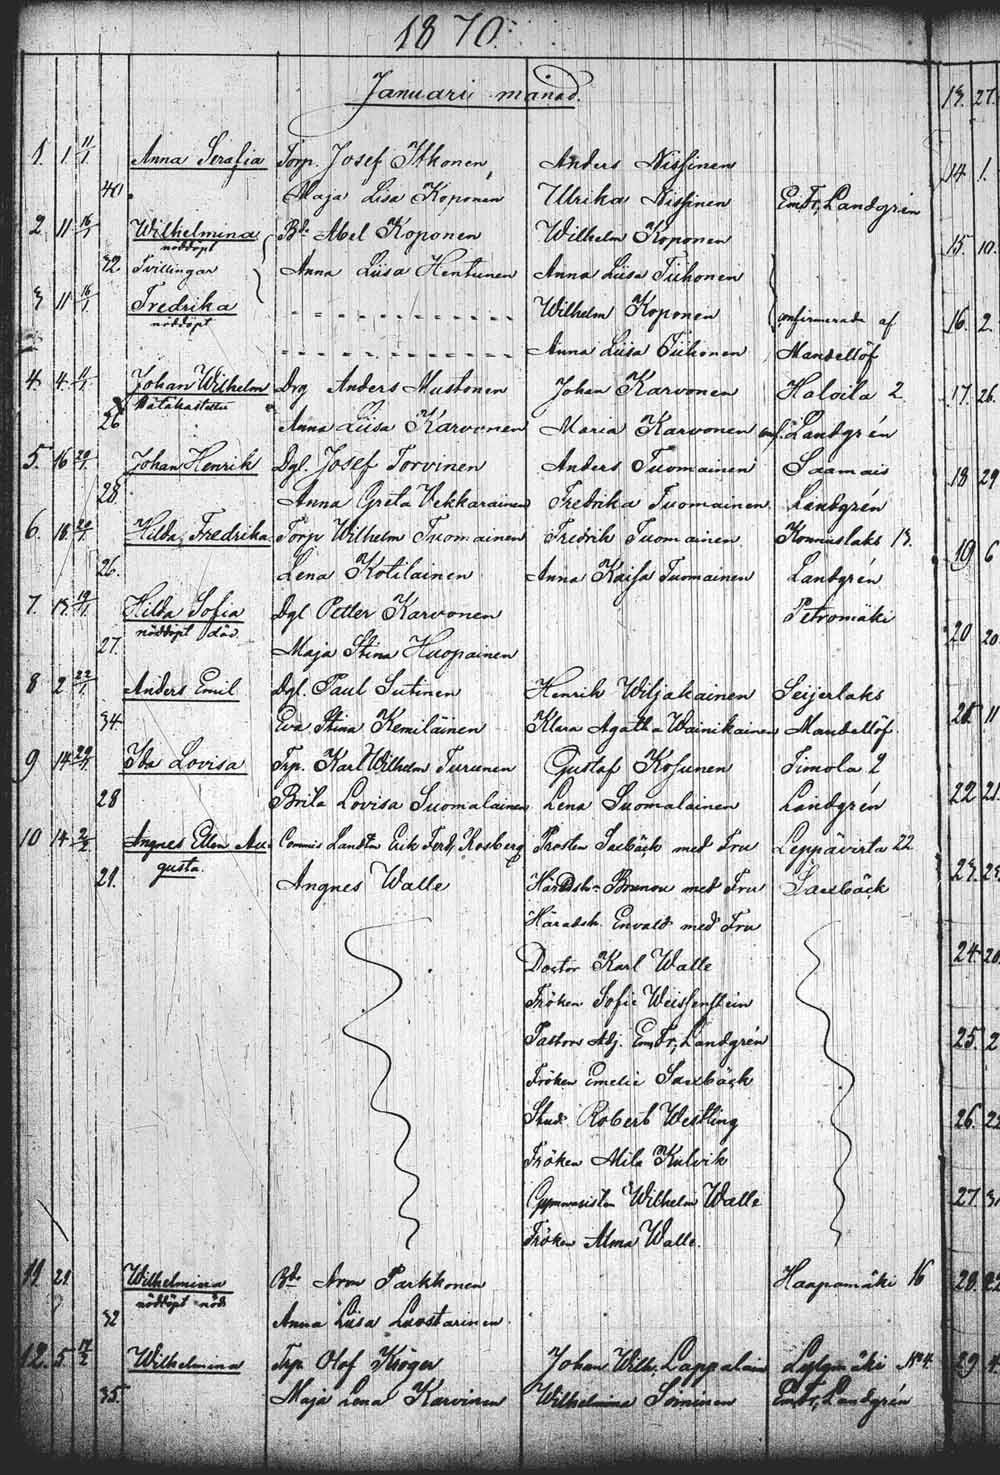 1870.
Januari månad.
1. 1 11/1 Anna Serafia Torp. Josef Ikkonen Anders Nissinen
40. Maja Lisa Koponen Ulrika Nissinen Em. Fr. Landgrén
2. 11 16/1 Wilhelmina Bd. Abel Koponen Wilhelm Koponen
nöddöpt
32 Tvillingar Anna Liisa Hentunen Anna Liisa Tiihonen
3 11 16/1 Fredrika Wilhelm Koponen confirmerade af
nöddöpt
Anna Liisa Tiihonen Mandellöf
4. 4. Johan Wilhelm Drg Anders Mustonen Johan Karvonen Haloila 2.
26 Anna Liisa Karvonen Maria Karvonen conf. Landgrén
5. 16 20/1 Johan Henrik Dgl. Josef Torvinen Anders Tuomainen Saamais
28 Anna Greta Vekkarainen Fredrika Tuomainen Landgrén
6. 18. 20/1 Hilda Fredrika Torp Wilhelm Tuomainen Fredrik Tuomainen Konnuslaks 13.
26. Lena Kotilainen Anna Kaisa Tuomainen Landgrén
7. 13. 19/1 Hilda Sofia Dgl Petter Karvonen Petromäki
nöddöpt död
27. Maja Stina Huopainen
8 2 22/1 Anders Emil Dgl. Paul Sutinen Henrik Wiljakainen Seijerlaks
34. Eva Stina Kemiläinen Klara Agatha Wainikainen Mandellöf
9 14 29/1 Ida Lovisa Trp. Karl Wilhelm Turunen Gustaf Kosunen Timola 2
28 Brita Lovisa Suomalainen Lena Suomalainen Landgrén
10 14 2/2 Angnes Ellen Au- Commis Landtm Erik Ferd. Rosberg Prosten Saxbäck med Fru Leppävirta 22
gusta.
21. Angnes Walle Häradsh. Brunou med Fru Saxbäck
Häradsh. Envald med Fru
Doctor Karl Walle
Fröken Sofie Weissenstein
Pastors Adj. Em. Fr. Landgrén
Fröken Emelie Saxbäck
Stud. Robert Westling
Fröken Mila Kulvik
Gymnasisten Wilhelm Walle
Fröken Alma Walle.
11 21 Wilhelmina Bd. Aron Parkkonen Haapamäki 16
nöddöpt död
32 Anna Liisa Luostarinen
12. 5 12/2 Wilhelmina Trp. Olof Kröger Johan Wilh. Lappalain No 4.
35. Maja Lena Karvinen Wilhelmina Soininen Em. Fr. Landgrén
13. 27.
14 1.
15. 10.
16. 2.
17. 26.
18 29
19 6
20 20
21. 11
22 21
23. 23.
24 20
25. 2
26. 22
27. 31
28. 22
29